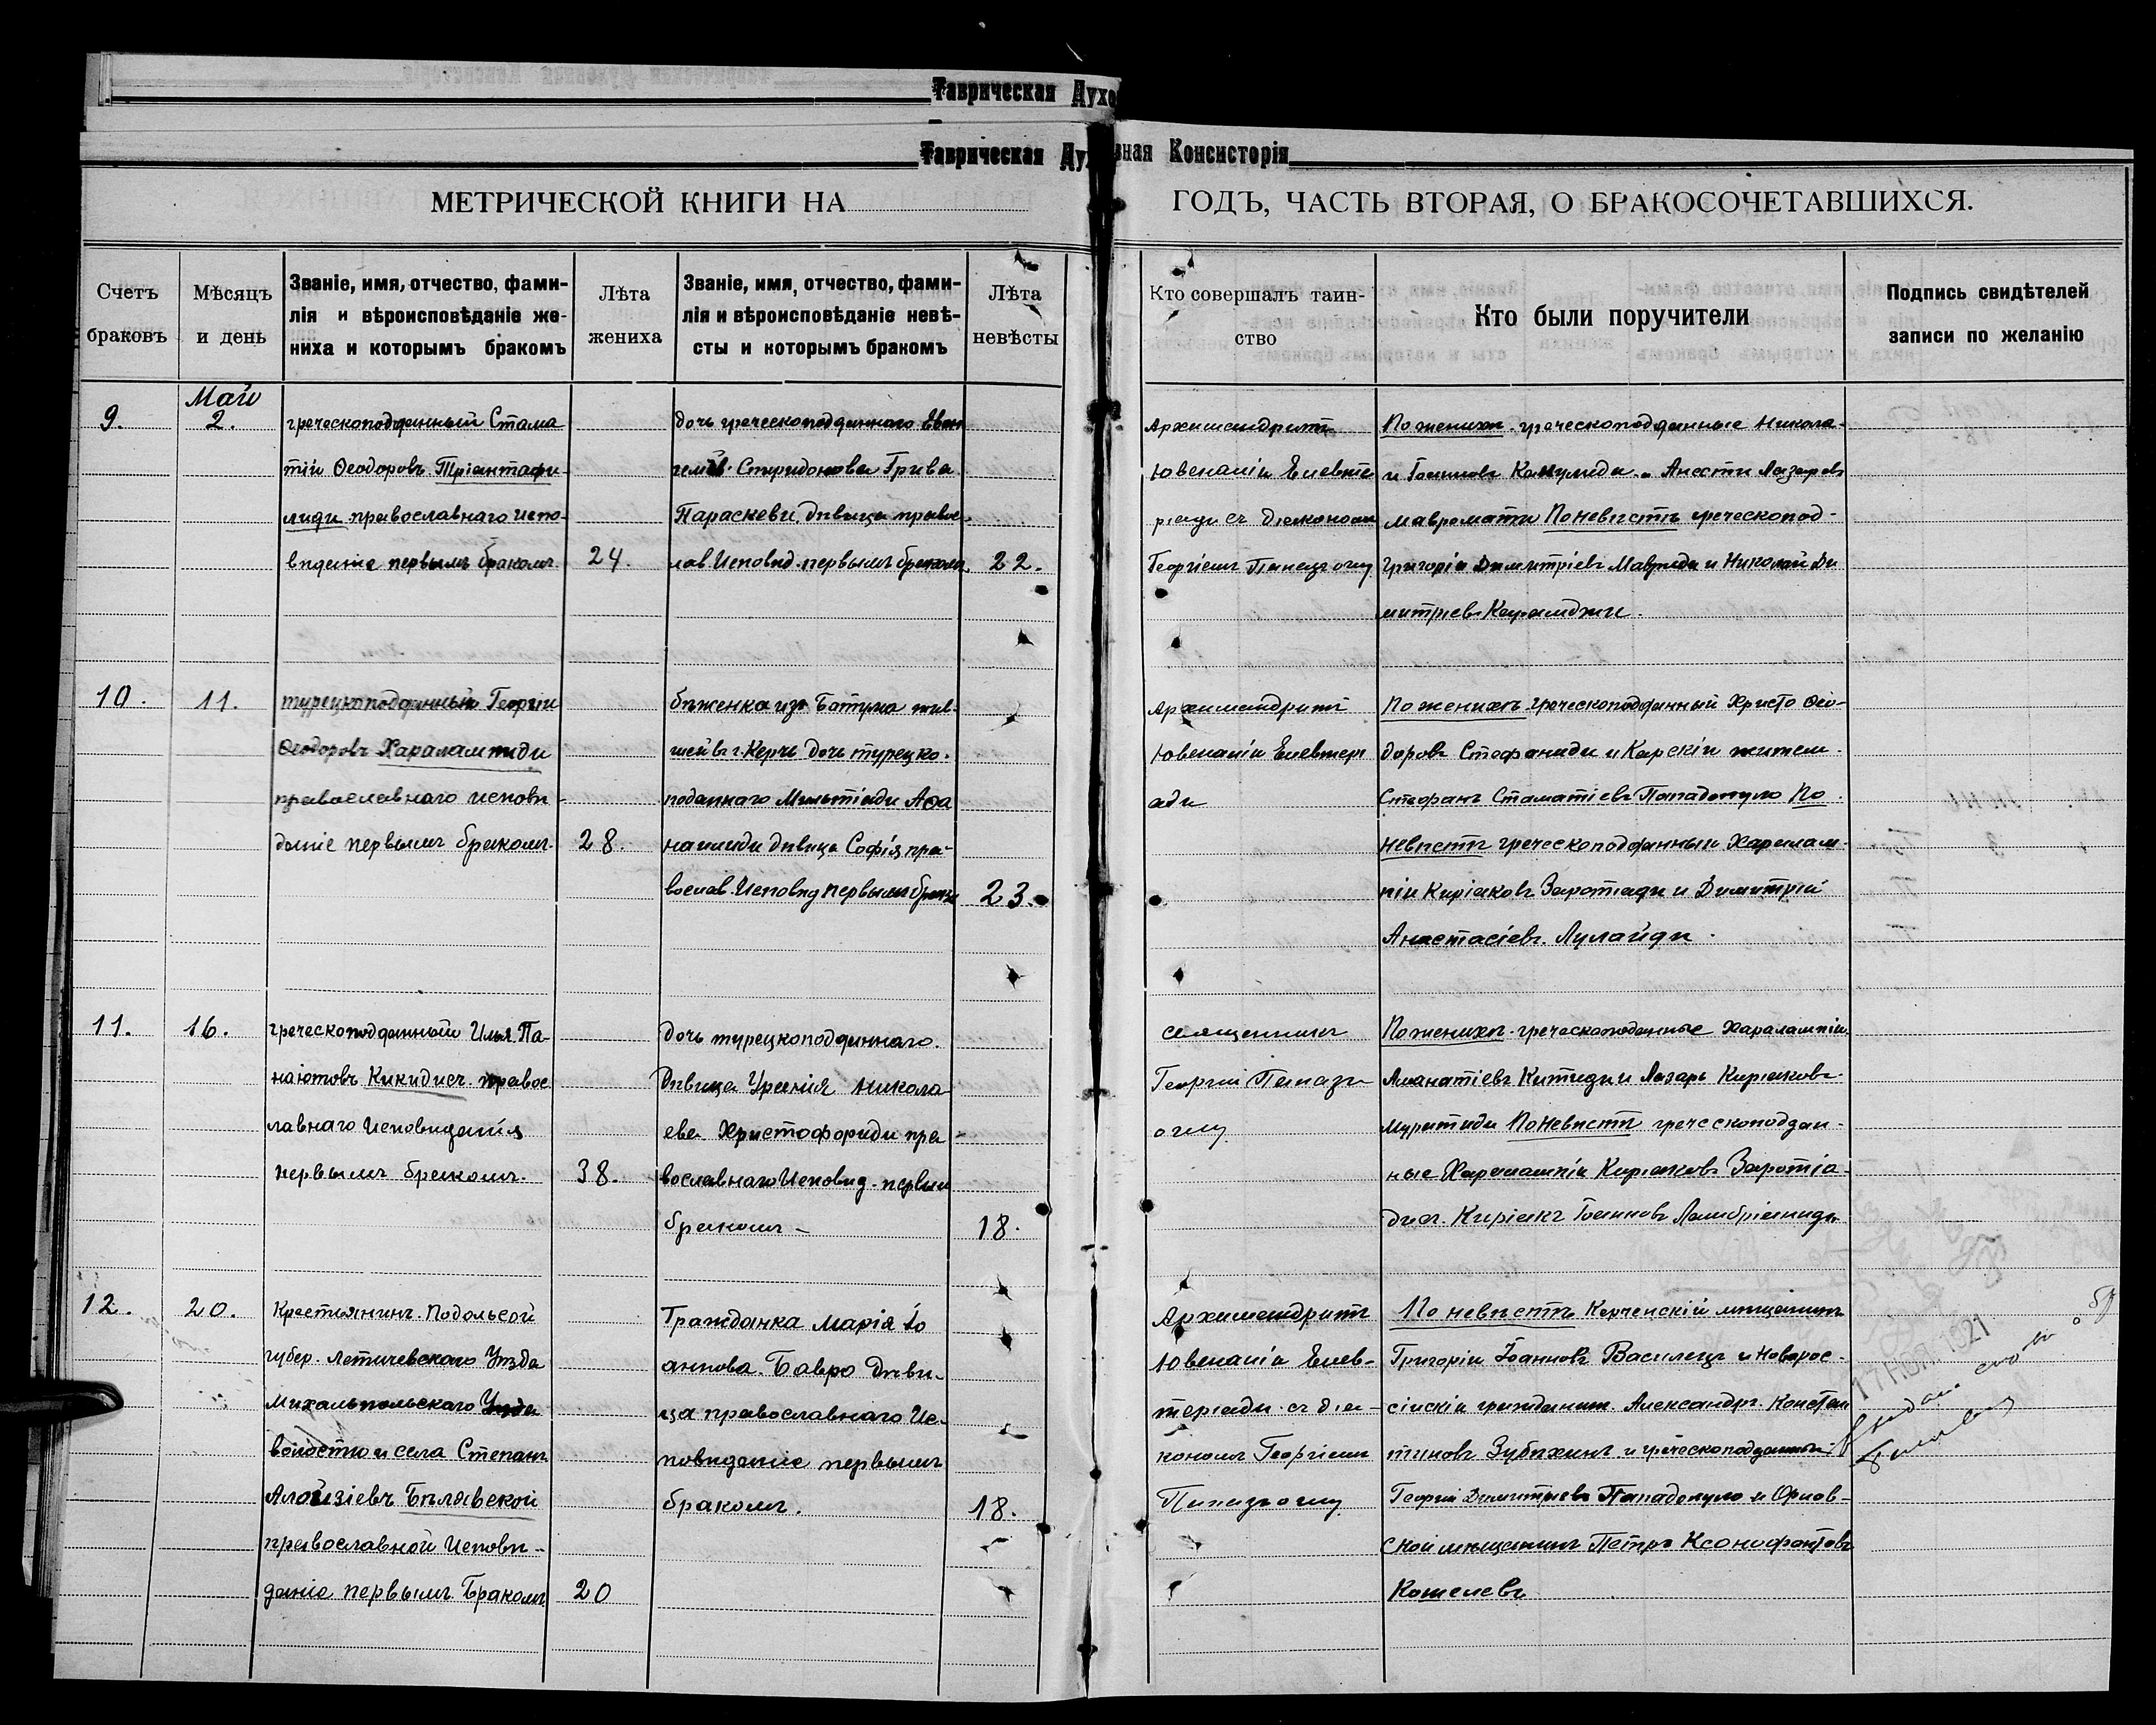 Таврическая Духо
Таврическая Духовная Консисторія
МЕТРИЧЕСКОЙ КНИГИ НА ГОДЪ, ЧАСТЬ ВТОРАЯ, О БРАКОСОЧЕТАВШИХСЯ.
Счетъ браковъ
Мѣсяцъ и день
Званіе, имя, отчество, фами-
лія и вѣроисповѣданіе же-
ниха и которымъ бракомъ
Лѣта
жениха
Званіе, имя, отчество, фами-
лія и вѣроисповѣданіе невѣ-
сты и которымъ бракомъ
Лѣта
невѣсты
Кто совершалъ таин-
ство
Кто были поручители
Подпись свидѣтелей
записи по желанію
9.
Май
2.
греческоподданный Стама
тій Ѳеодоровъ Тріантафи-
лиди православнаго испо-
вѣденіе первымъ бракомъ
24.
дочь греческоподданнаго Еван
Спиридонова Грива
Параскеви дѣвица правос
лав. Исповѣд. первымъ бракомъ
22.
Архимандритъ
Ювеналій Елевте
ріади съ діакономъ
Георгіемъ
По женихѣ греческоподданные Никола
и Іоанновъ и Анести Лазаревъ
Мавромати По невѣстѣ греческопод-
Григорій Димитріевъ Мавриди и Николай Ди
митріевъ
10.
11.
турецкоподданный Георгій
Ѳеодоровъ Харалампиди
православнаго исповѣ-
даніе первымъ бракомъ.
28.
бѣженка изъ Батума жив-
шей въ г. Керчь дочь турецко-
поданнаго Мильтіади Аѳа
насиади дѣвица Софія пра-
вослав. Исповѣд первымъ брако
23.
Архимандритъ
Ювеналій Елевтері
ади
По женихѣ греческоподданный Христо Ѳео-
доровъ Стефаниди и Карскій жители
Стефанъ Стаматіевъ Пападопуло По
невѣстѣ греческоподданный Харалам-
пій Киріаковъ и Димитрій
Анастасіевъ Лулайди.
11.
16.
греческоподданный Илья Па-
наіотовъ Кикидисъ правос
лавнаго Исповѣданія
первымъ бракомъ.
38.
дочь турецкоподданнаго
Дѣвица Уранія Никола
ева Христофориди пра-
вославнаго Исповѣд. первым
бракомъ -
18.
священникъ
Георгій Папазъ
оглу
По женихѣ греческоподанные Харалампій
Аманатіевъ и Лазарь Киріаковъ
Муратиди По Невѣстѣ греческоподдан-
ные Харалампій Киріаковъ
Киріакъ Іоанновъ
12.
20.
Крестьянинъ Подольской
губер. Летичевскаго Уѣзда
Михальпольскаго Уѣзда
волостю и села Степанъ
Алойзіевъ Бѣлявской
православной Исповѣ-
даніе первымъ Бракомъ
20
Гражданка Марія Іо
аннова Бавро Дѣви-
ца православнаго Ис-
повѣданіе первымъ
бракомъ.
18.
Архимандритъ
Ювеналій Елев-
теріади съ діа-
кономъ Георгіемъ
Папазъоглу
По невѣстѣ Керченскій мѣщанинъ
Григорій Іоанновъ Василецъ и Новорос-
сійскій гражданин Александръ Констан
тиновъ Зубѣхинъ и греческоподданный
Георгій Димитріевъ Пападопуло и Орлов-
ской мѣщанинъ Петръ Ксенофонтовъ
Кошелевъ
17 НОЯ 1921